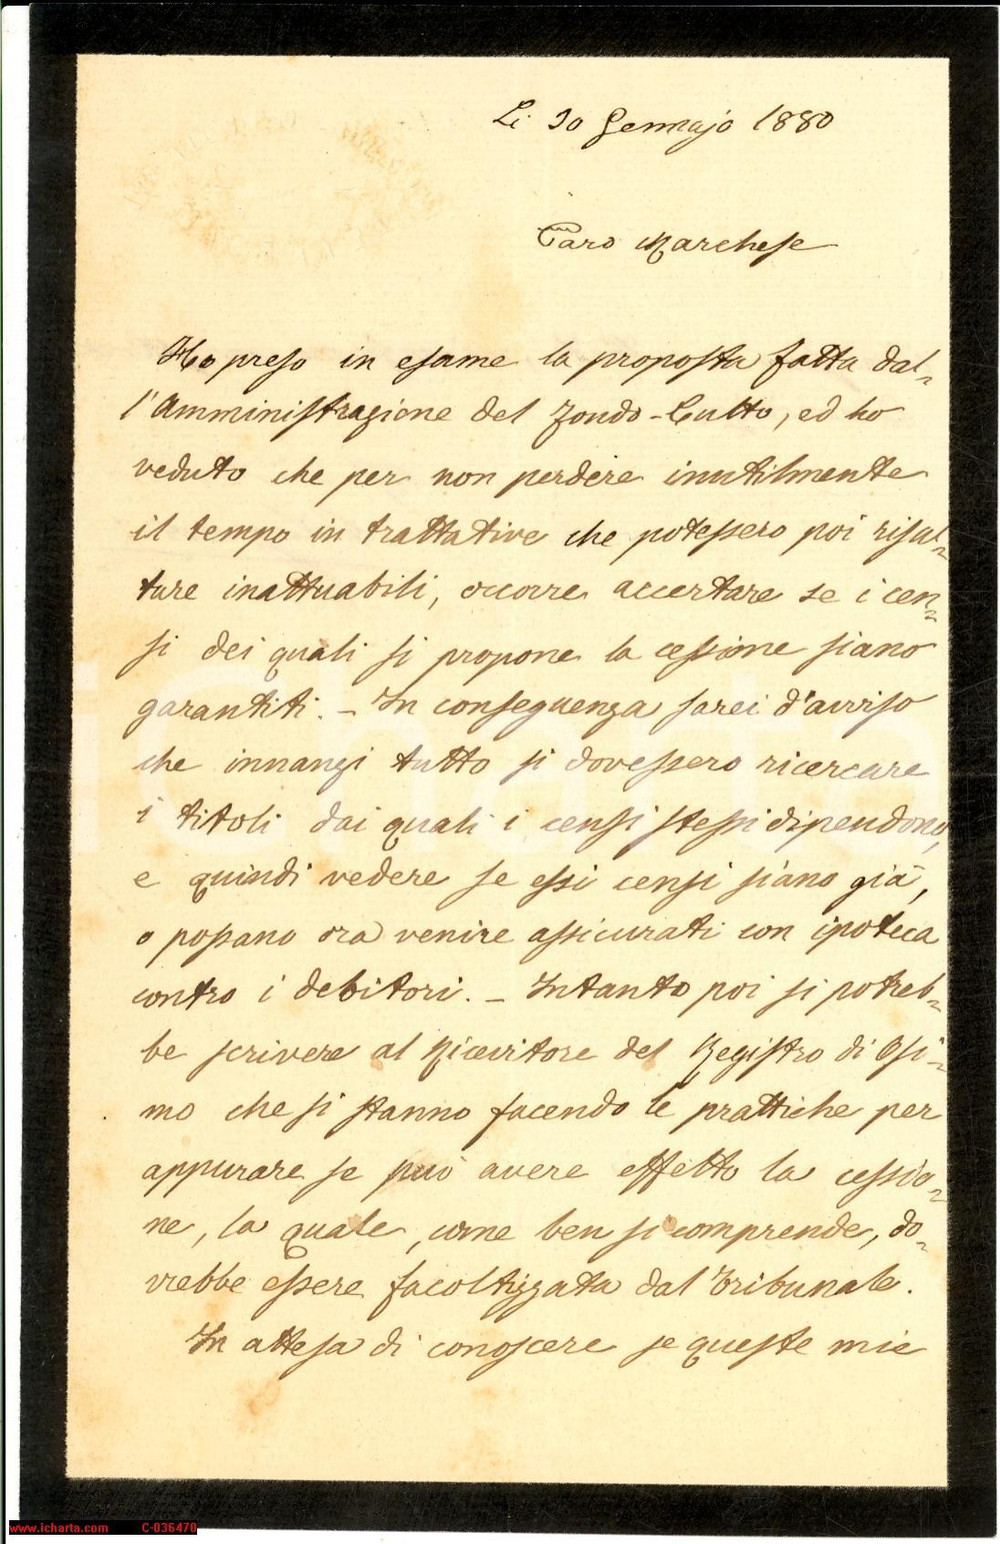 Li 30 Gennajo 1880
Caro Marchese
Ho preso in esame la proposta fatta dal-
l'Amministrazione del Fondo-Culto, ed ho
veduto che per non perdere inutilmente
il tempo in trattative che potessero poi risul-
tare inattuabili, occorre accertare se i cen-
si dei quali si propone la cessione siano
garantiti. - In conseguenza sarei d'avviso
che innanzi tutto si dovessero ricercare
i titoli dai quali i censi stessi dipendono,
e quindi vedere se essi censi siano già,
o possano ora venire assicurati con ipoteca
contro i debitori. - Intanto poi si potreb-
be scrivere al Ricevitore del Registro di Osi-
mo che si stanno facendo le prattiche per
appurare se può avere effetto la cessio-
ne, la quale, come ben si comprende, do-
vrebbe essere facoltizzata dal Tribunale.
In attesa di conoscere se queste mie
www.icharta.com C-036470